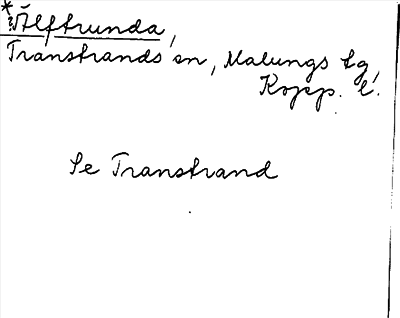 *?Älftrunda,
Transtrands sn, Malungs tg,
Kopp. l.
Se Transtrand